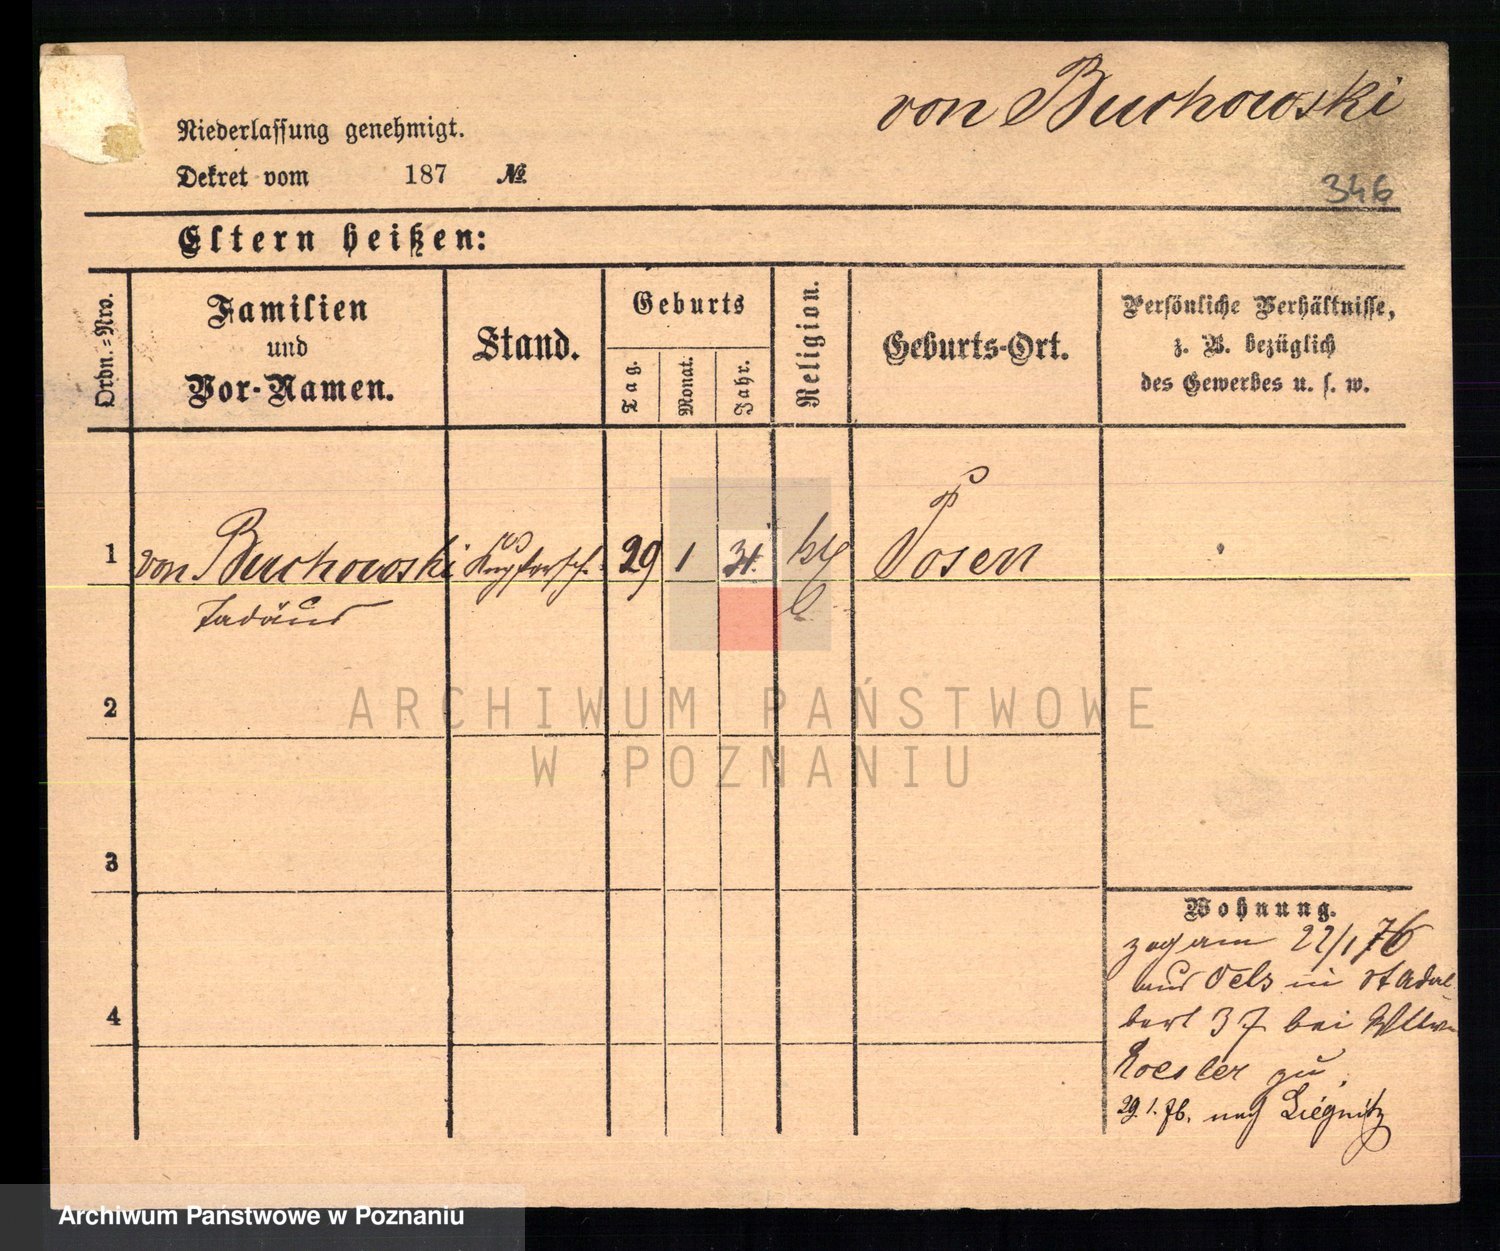 von Buchowski
Niederlassung genehmigt.
Dekret vom 187 №
346
Eltern heißen:
Ordn.=Nro.
Familien
und
Vor-Namen.
Stand.
Geburts
Tag.
Monat.
Jahr.
Religion.
Geburts-Ort.
Persönliche Verhältnisse,
z. B. bezüglich
des Gewerbes u. s. w.
1 von Buchowski 29 1 Posen
Tadäus
2
3
4
Wohnung.
zog am 22/1 76
aus Oels in St Adal
bert 37 bei Wittwe
Roesler zu
29.1.76. nach Liegnitz
ARCHIWUM PAŃSTWOWE
W POZNANIU
Archiwum Państwowe w Poznaniu